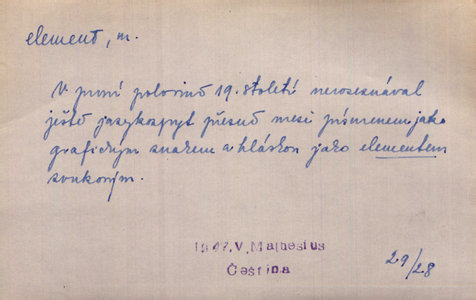 element, m.
V první polovině 19. století nerozeznával
ještě jazykozpyt přesně mezi písmenem jako
grafickým znakem a hláskou jako elementem
zvukovým.
1947.V.Mathesius
Čeština
29/28